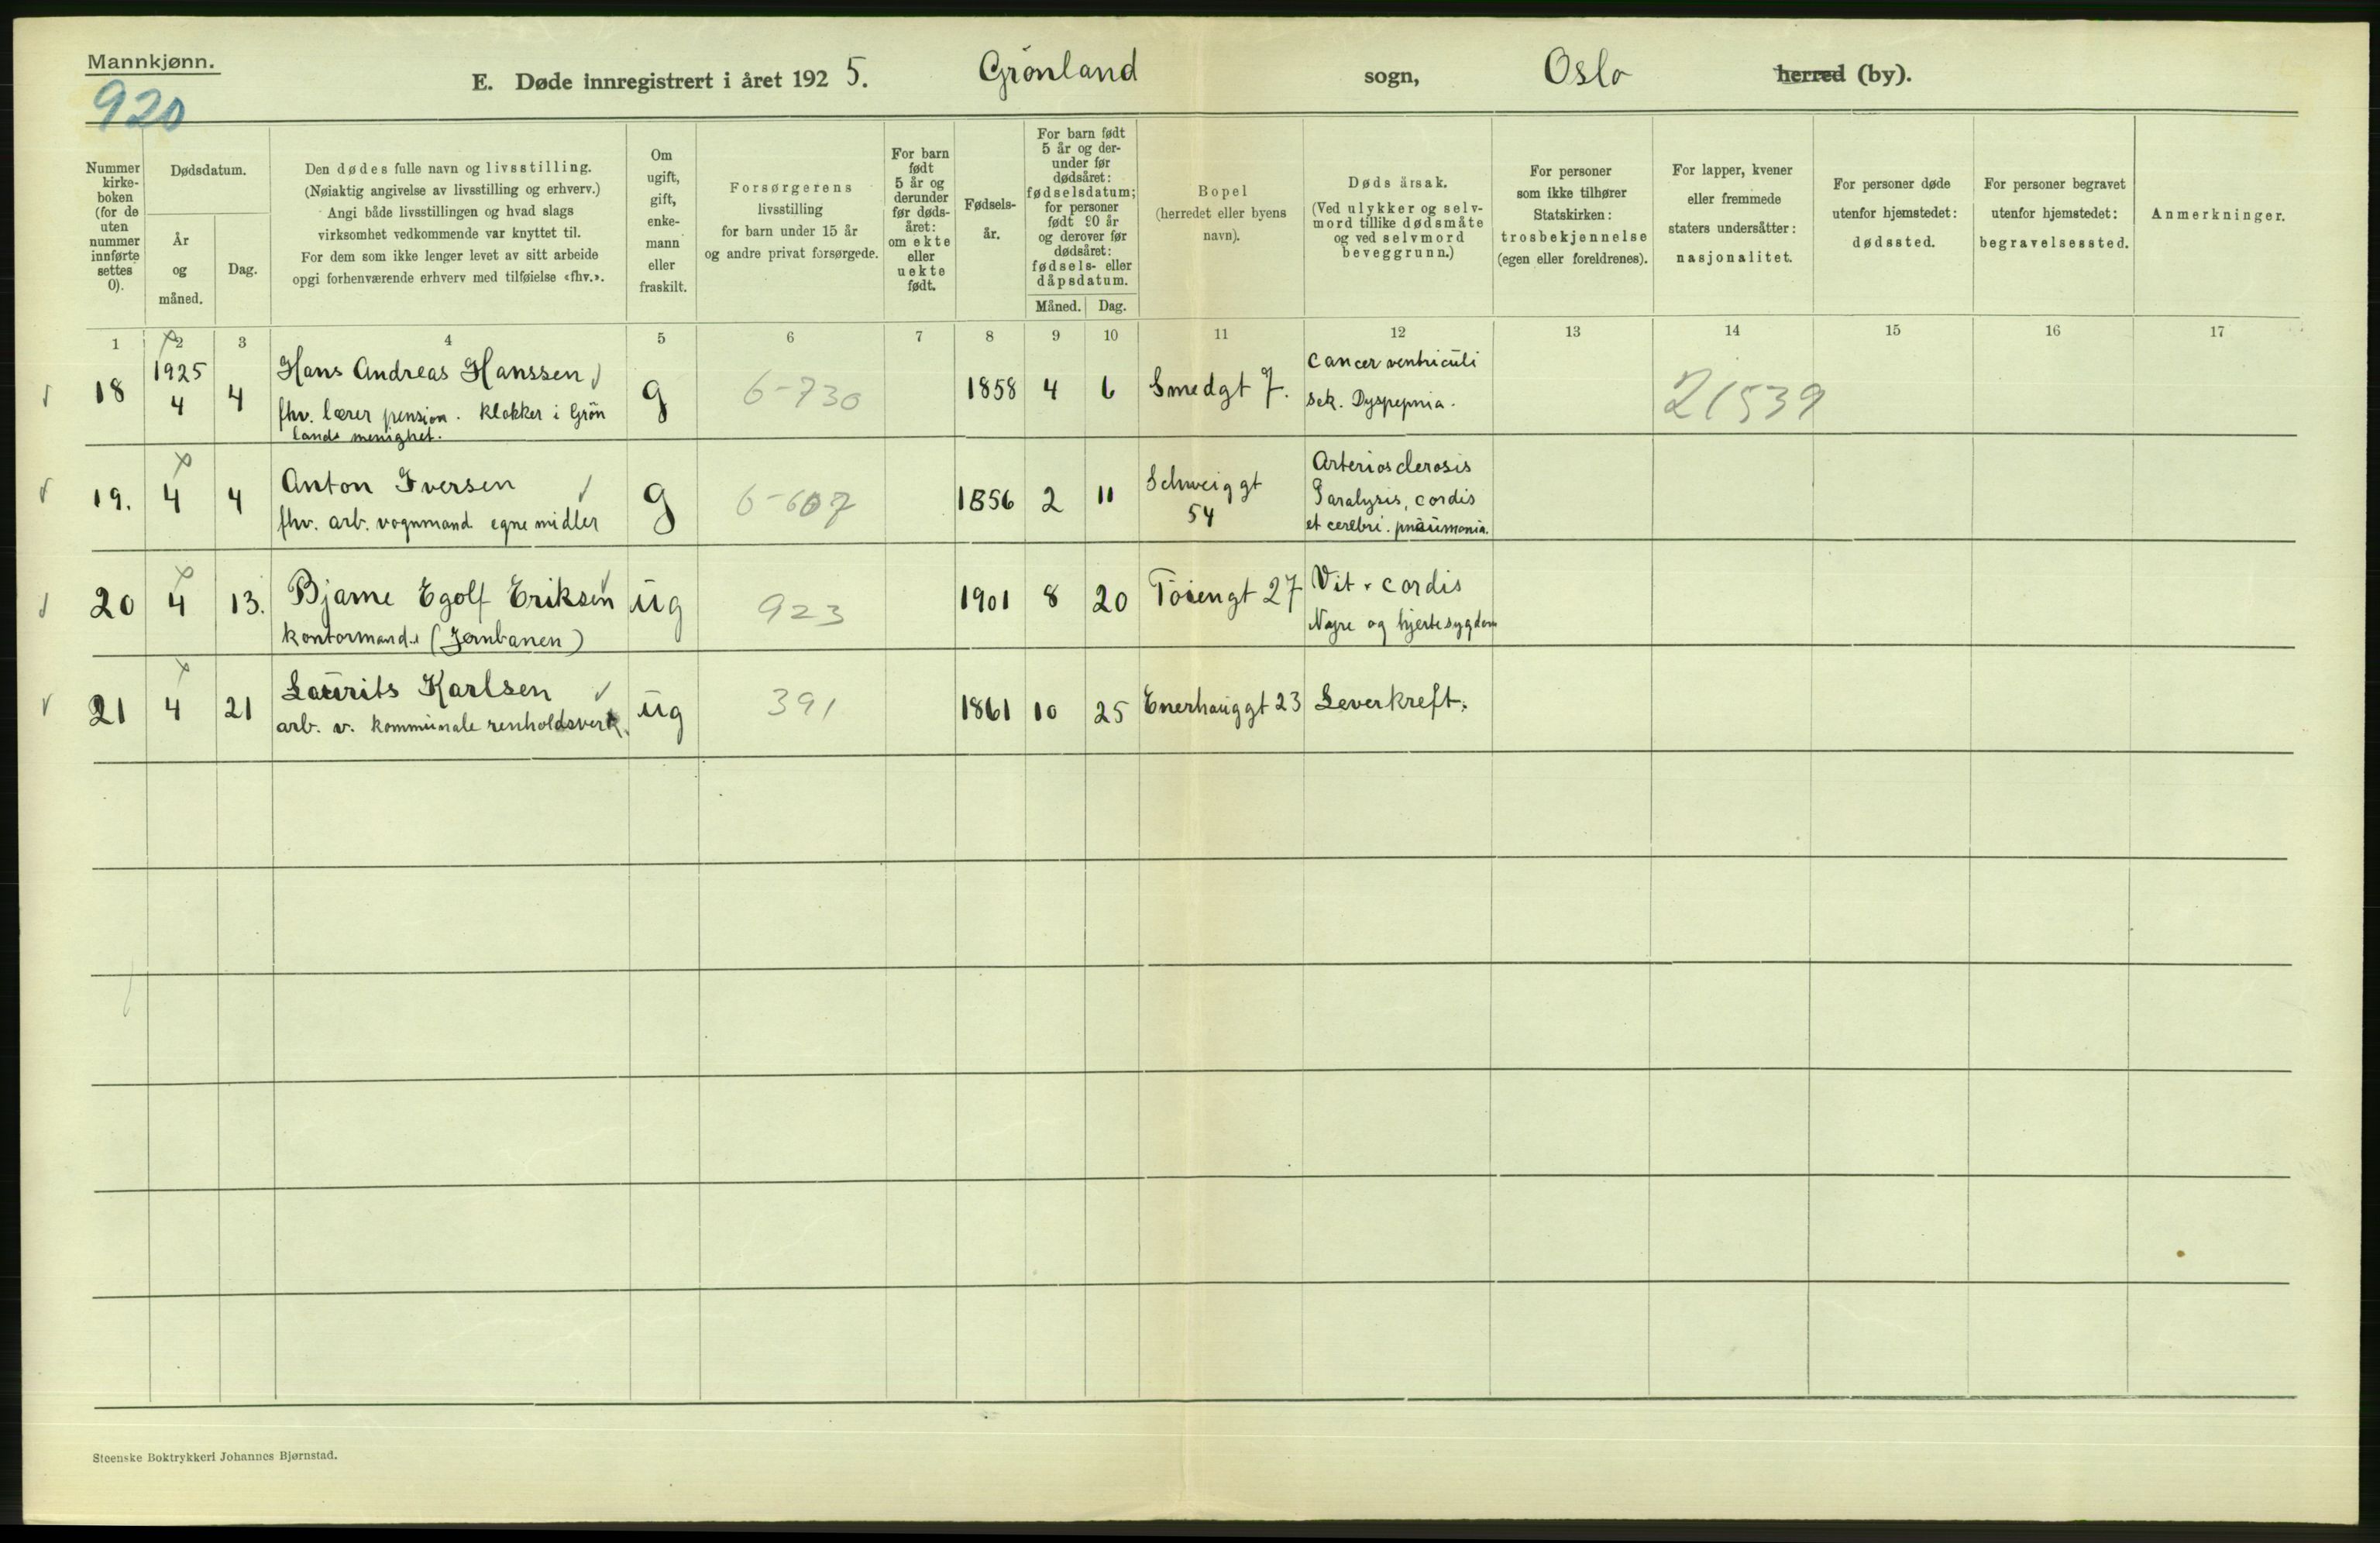 Mannkjønn.
920
E. Døde innregistrert i året 192 5. Grönland sogn, Oslo herred (by).
Nummer
kirke-
boken
(for de
uten
nummer
innførte
settes
0).
Dødsdatum.
År
og
måned.
Dag.
Den dødes fulle navn og livsstilling.
(Nøiaktig angivelse av livsstilling og erhverv.)
Angi både livsstillingen og hvad slags
virksomhet vedkommende var knyttet til.
For dem som ikke lenger levet av sitt arbeide
opgi forhenværende erhverv med tilføielse «fhv.».
Om
ugift,
gift,
enke-
mann
eller
fraskilt.
Forsørgerens
livsstilling
for barn under 15 år
og andre privat forsørgede.
For barn
født
5 år og
derunder
før døds-
året:
om ekte
eller
uekte
født.
Fødsels-
år.
For barn født
5 år og der-
under før
dødsåret:
fødselsdatum;
for personer
født 90 år
og derover før
dødsåret:
fødsels- eller
dåpsdatum.
Måned. Dag.
Bopel
(herredet eller byens
navn).
Døds årsak.
(Ved ulykker og selv-
mord tillike dødsmåte
og ved selvmord
beveggrunn.)
For personer
som ikke tilhører
Statskirken:
trosbekjennelse
(egen eller foreldrenes).
For lapper, kvener
eller fremmede
staters undersåtter:
nasjonalitet.
For personer døde
utenfor hjemstedet:
dødssted.
For personer begravet
utenfor hjemstedet:
begravelsessted.
Anmerkninger.
1 2 3 4 5 6 7 8 9 10 11 12 13 14 15 16 17
18 1925 4 4 Hans Andreas Hanssen
fhv. lærer pension. Klokker i Grön
lands menighet.
g 6-730 1858 4 6 Smedgt 7. Cancer ventriculi
sek. Dyspepnia. 21539
19. 4 4 Anton Iversen
fhv. arb. vognmand egne midler
g 6-607 1856 2 11 Schweiggt
54
Arteriosclerosis
Paralysis, cordis
et cerebri. pneumonia.
20 4 13. Bjarne Egolf Eriksen
kontormand. (Jernbanen)
ug 923 1901 8 20 Töiengt 27 Vit. cordis
Nyre og hjertesygdom
21 4 21 Laurits Karlsen
arb. v. kommunale renholdsverk.
ug 391 1861 10 25 Enerhauggt 23 Leverkreft.
Steenske Boktrykkeri Johannes Bjørnstad.